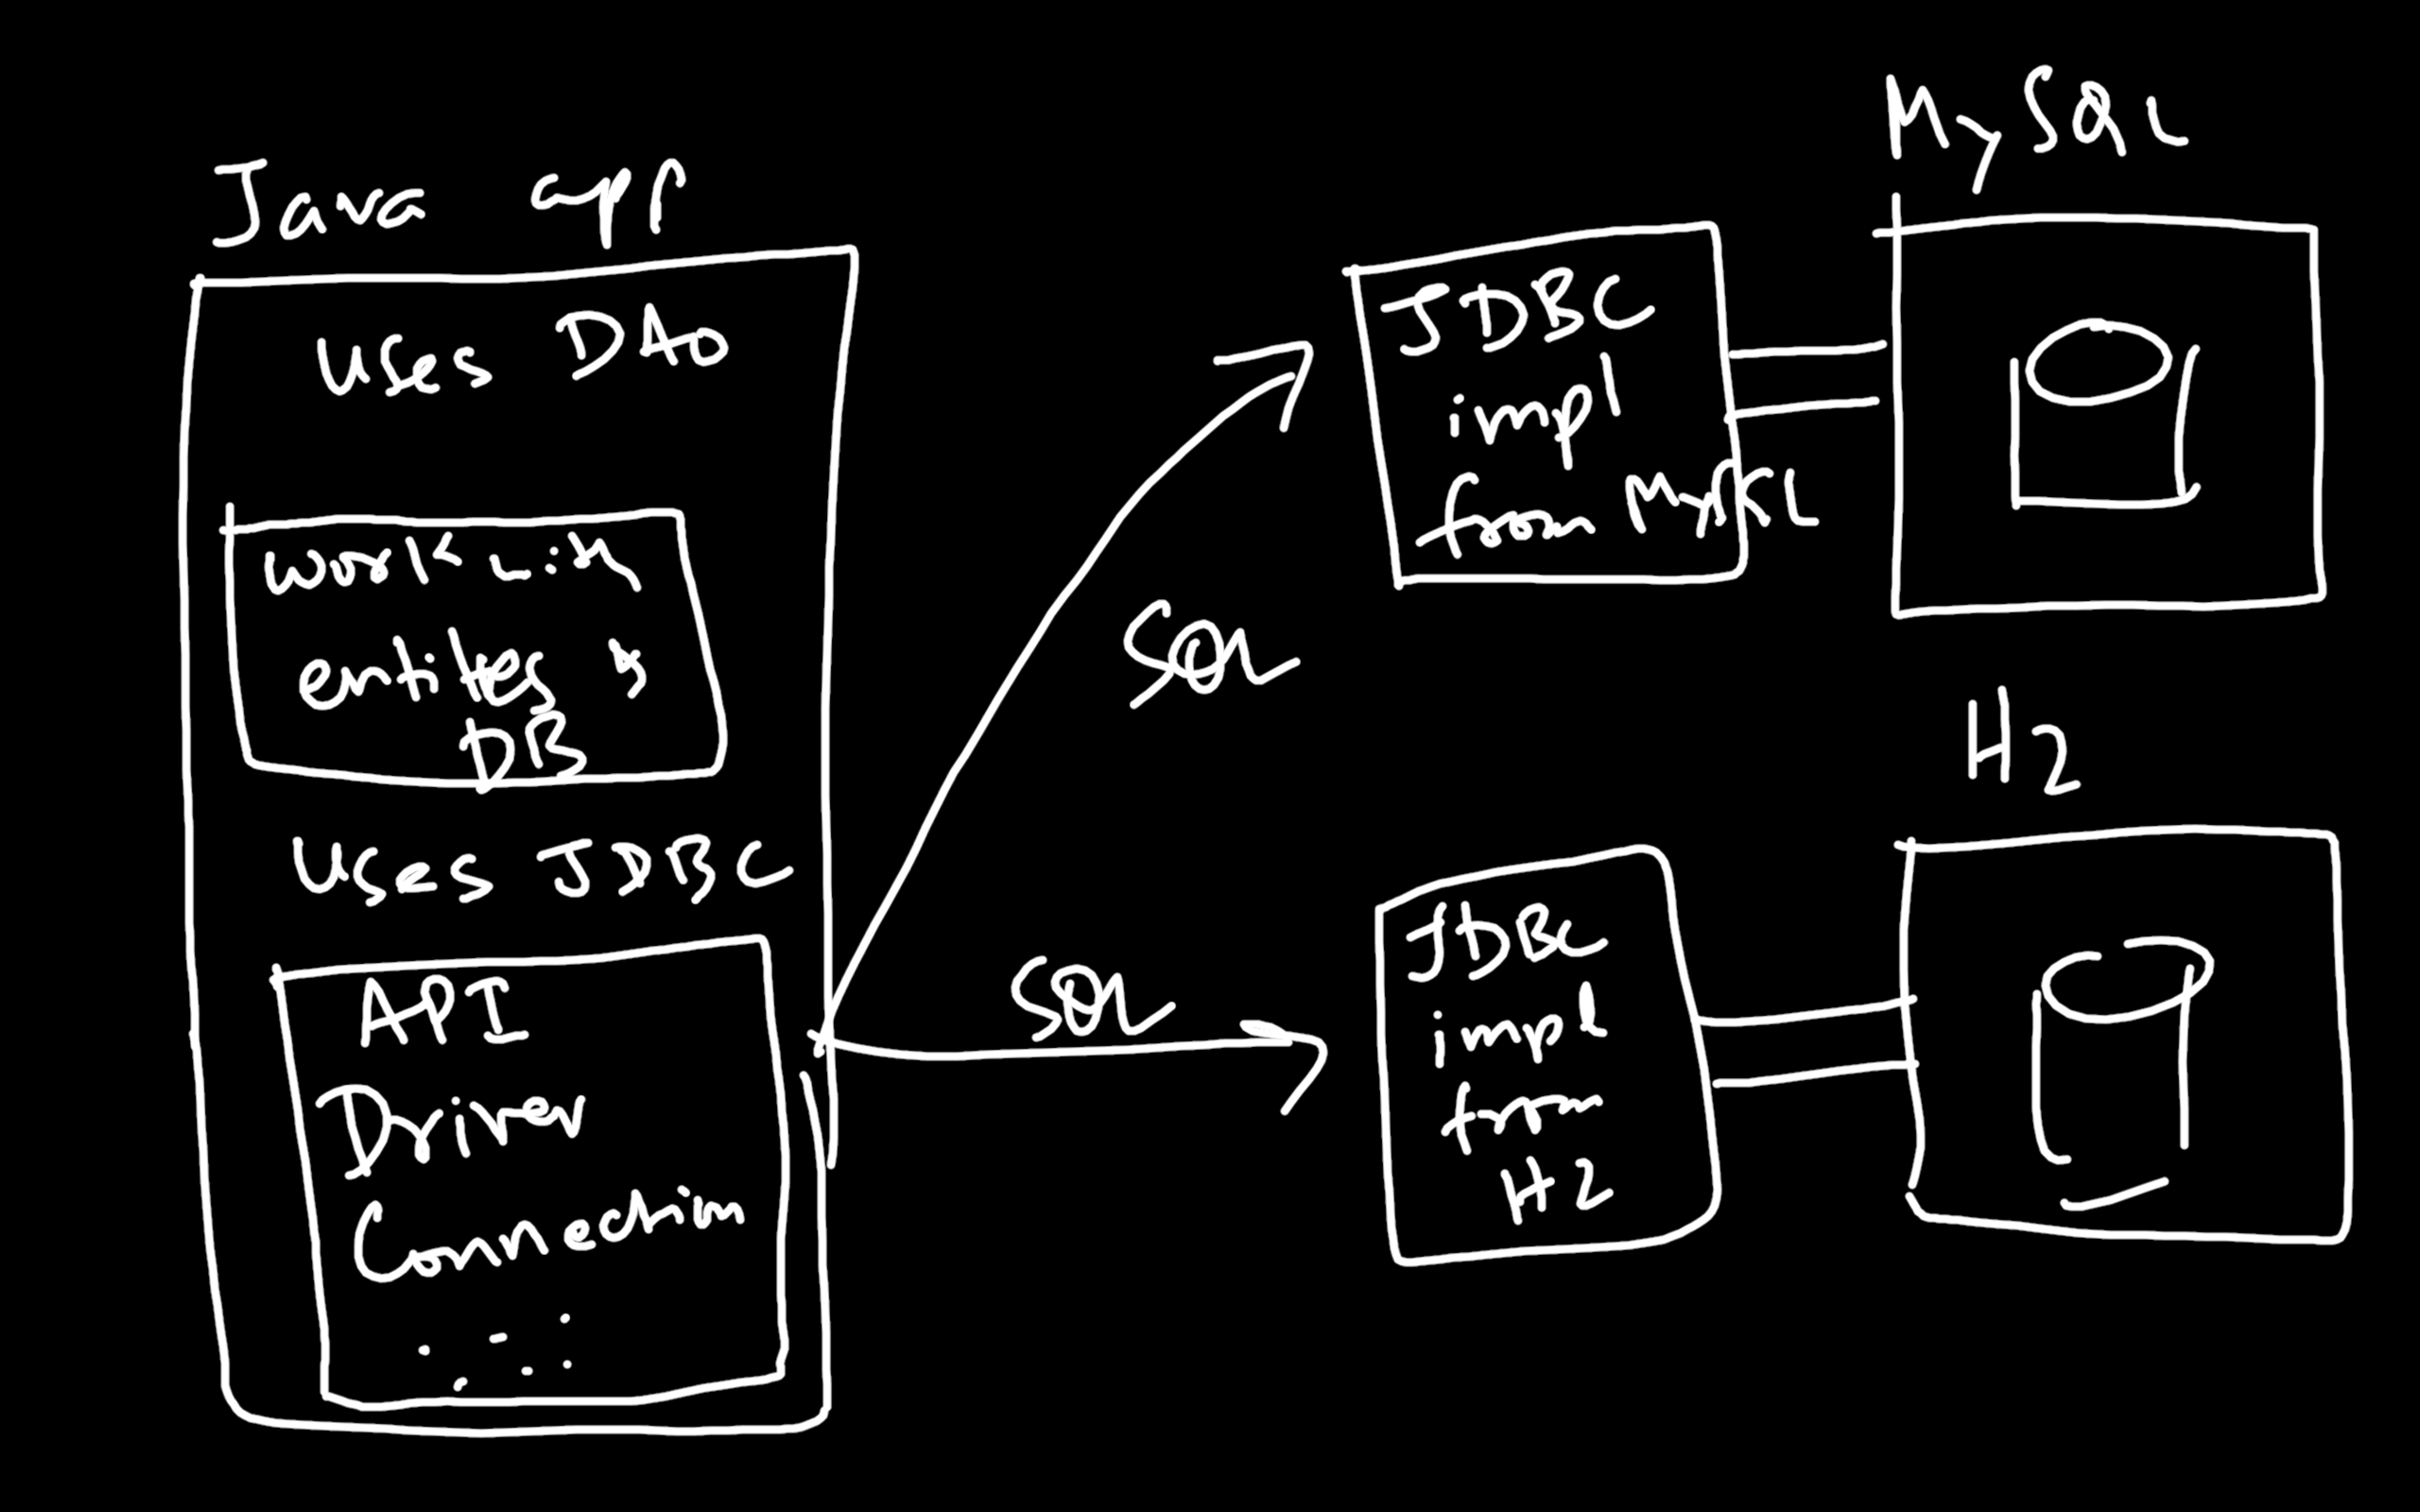 Java app
Uses DAO
work with
entities &
DB
Uses JDBC
API
Driver
Connection
SQL
SQL
JDBC
impl
from MySQL
MySQL
JDBC
impl
from
H2
H2